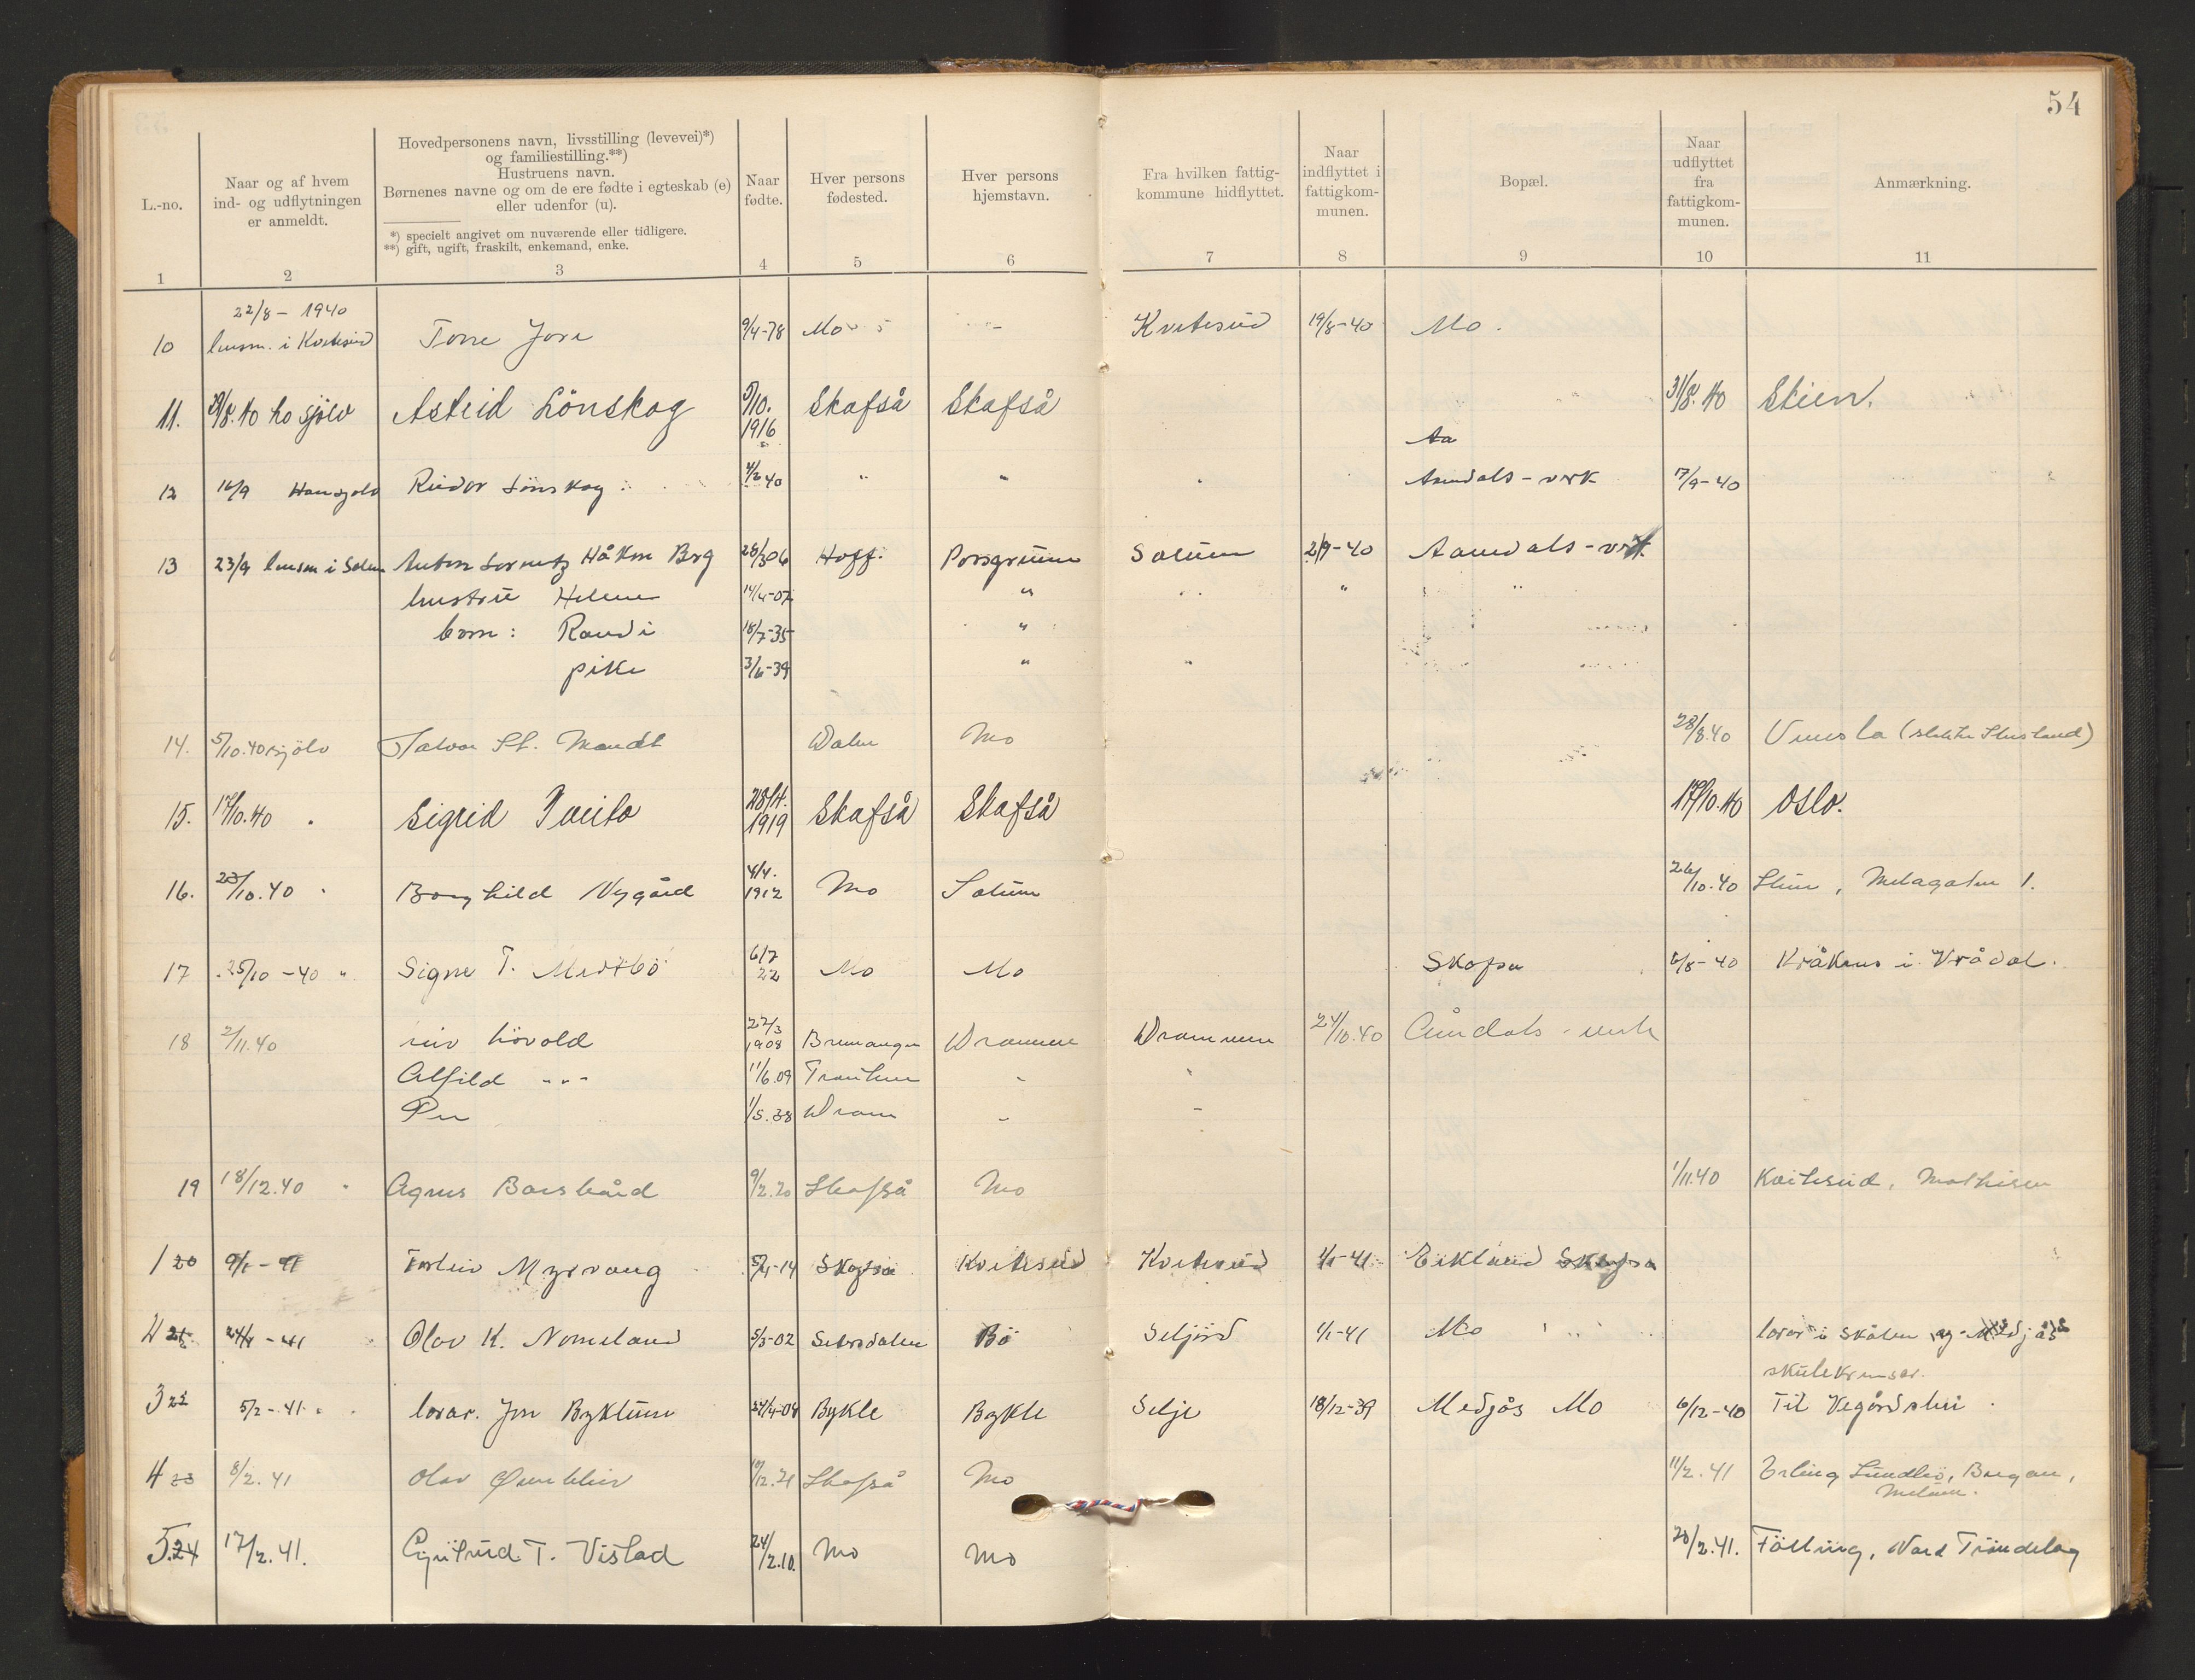 54
L.-no.
Naar og af hvem
ind- og udflytningen
er anmeldt.
Hovedpersonens navn, livsstilling (levevei)*)
og familiestilling.**)
Hustruens navn.
Børnenes navne og om de ere fødte i egteskab (e)
eller udenfor (u).
*) specielt angivet om nuværende eller tidligere.
**) gift, ugift, fraskilt, enkemand, enke.
Naar
fødte.
Hver persons
fødested.
Hver persons
hjemstavn.
Fra hvilken fattig-
kommune hidflyttet.
Naar
indflyttet i
fattigkom-
munen.
Bopæl.
Naar
udflyttet
fra
fattigkom-
munen.
Anmærkning.
1 2 3 4 5 6 7 8 9 10 11
22/8 - 1940
10 lensm. i Kviteseid Tone Jore 9/4-78 Mo Kviteseid 19/8-40 Mo.
11. 29/8.40 ho sjølv Astrid Lönskog 5/10. 1916 Skafså Skafså 31/8.40 Skien.
Aa
12 16/9 Han sjølv Reidar Lönskog 4/2 40 " " Aamdals-verk 17/9-40
13 23/9 lensm i Solum Anton Lorentz Håkon Berg 28/3 06 Hoff. Porsgrunn Solum 2/9-40 Aamdals-verk
hustru Helene 14/4-07 " "
barn: Randi 18/7-35 "
pike 3/6-39 " "
14. 5/10.40 sjölv Halvor St. Mandt Dalen Mo 28/8.40 Vennsla
15. 17/10.40 Sigrid Tveito 28/4. 1919 Skafså Skafså 17/10.40 Oslo.
16. 23/10.40 Borghild Nygård 4/4. 1912 Mo Solum 26/10.40 Skien, Melagaten 1.
17 25/10-40 " Signe T. Midtbö 6/7 22 Mo Mo Skafså 6/8-40 Kråknes i Vrådal.
18 2/11.40 Liv Lövold 22/3 1908 Bremanger Drammen Drammen 24/10.40 Åmdals-verk
Alfild -"- 11/6.09 -
Per 1/5.38 Dram - -
19 18/12.40 Agnes Baisgård 9/2.20 Skafså Mo 1/11.40 Kviteseid, Mathisen
1 20 9/1-41 Torleiv Myrvang 5/4-14 Skafså Kviteseid Kviteseid 1/1-41 Eiklund Skafså
2 21 24/1-41 Olav K. Nomeland 5/3-02 Setesdalen Bö Seljord 1/1-41 Mo lærar i Skålen og Medjås
skulekrinsar.
3 22 5/2-41. lærar. Jon Byklum 24/4-04 Bykle Bykle Selje 18/12-39 Medjås Mo 6/12-40 Til Vegårdshei.
4 23 8/2.41 Olav 10/12.21 Skafså Mo 11/2.41 Erling Sundbö, Borgen,
Melum.
5.24 17/2.41. Gjutrud T. Vistad 24/2.10. Mo Mo 20/2.41. Fölling, Nord Tröndelag